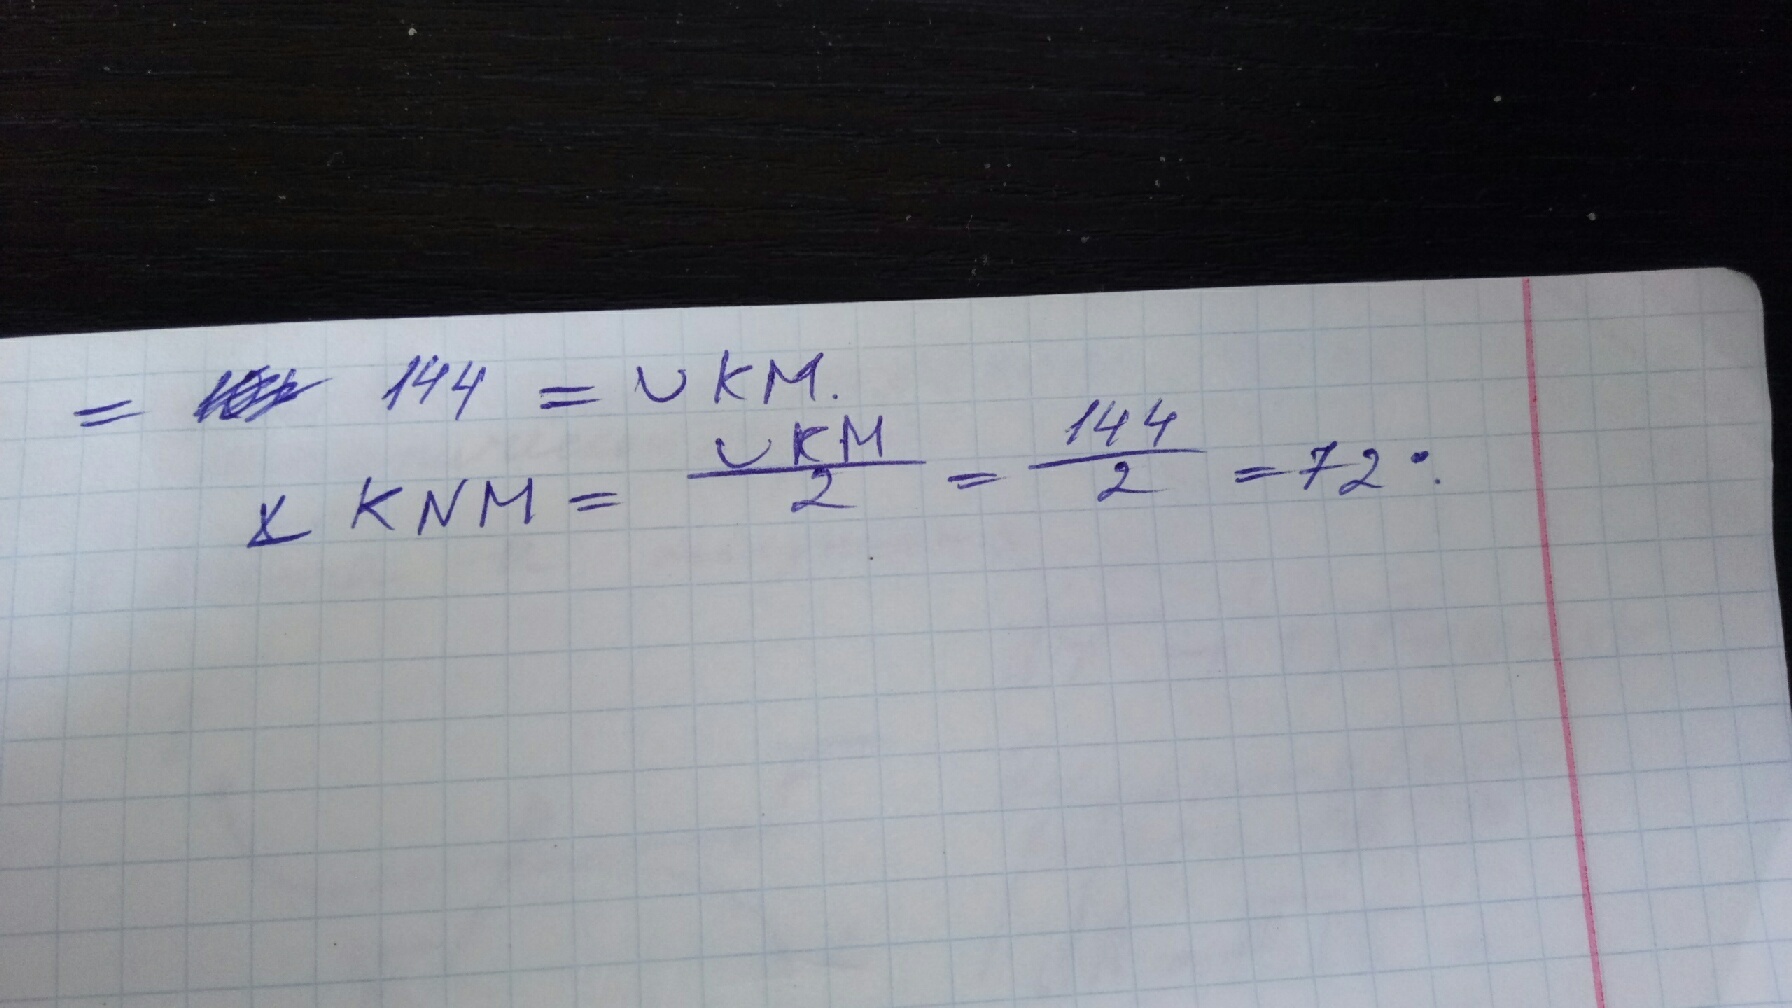 = 144 = ∪ KM.
∠ KNM = ∪KM/2 = 144/2 = 72°.